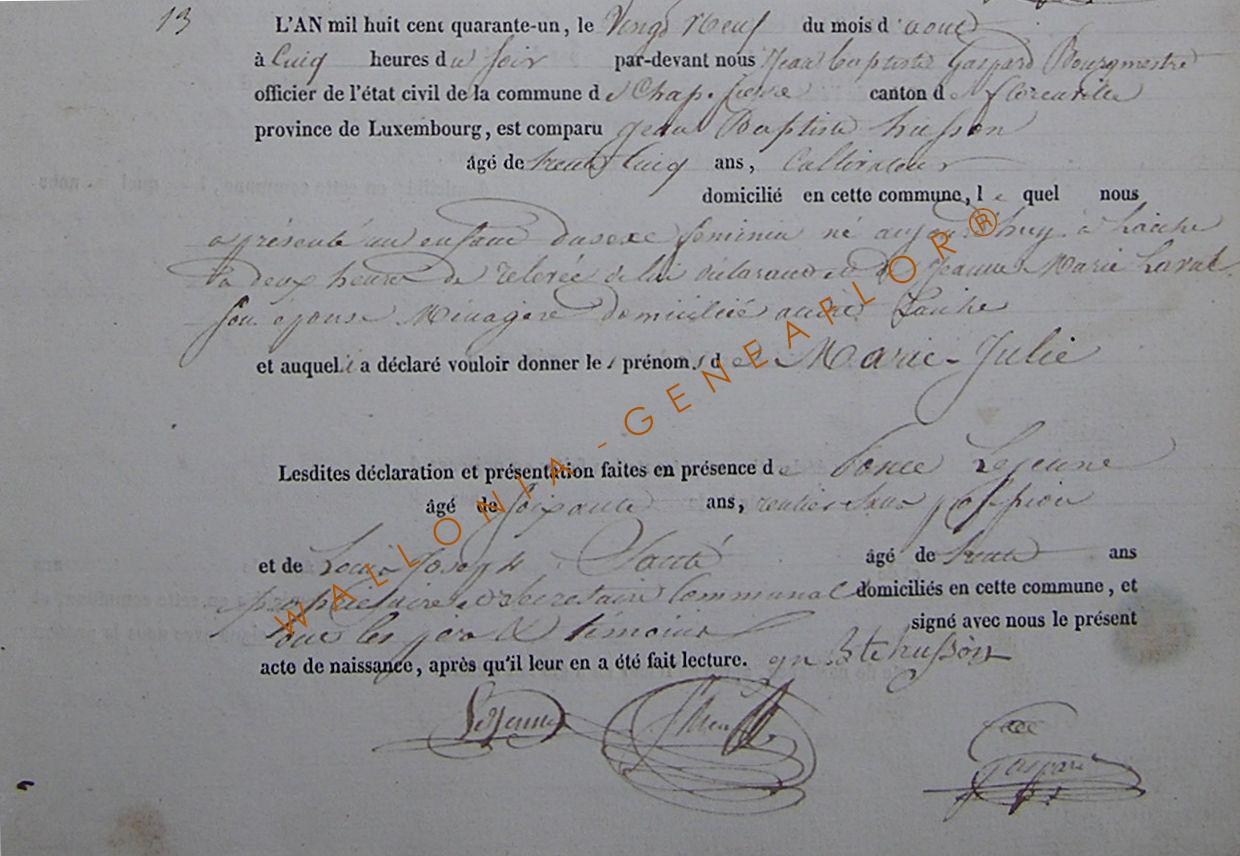 13
L'AN mil huit cent quarante-un, le Vingt Neuf du mois d'aout
à Cinq heures du soir par-devant nous Jean baptiste Gaspard Bourgmestre
officier de l'état civil de la commune de canton de florenville
province de Luxembourg, est comparu Jean Baptiste husson
âgé de trente Cinq ans, Cultivateur
domicilié en cette commune, le quel nous
a présenté un enfant du sexe feminin né aujourd'huy à Laiche
à deux heures de relevée de lui déclarant et de Jeanne Marie Laval
son épouse Ménagere domiciliée audit Laiche
et auquel il a déclaré vouloir donner les prénoms de Marie-Julie
Lesdites déclaration et présentation faites en présence de Ponce Lejeune
âgé de soixante ans, rentier sans profession
et de Louis Joseph âgé de trente ans
propriétaire et secretaire Communal domiciliés en cette commune, et
tous les témoins signé avec nous le présent
acte de naissance, après qu'il leur en a été fait lecture. husson
Lejeune
gaspard
WALLONIA-GENEARLOR®